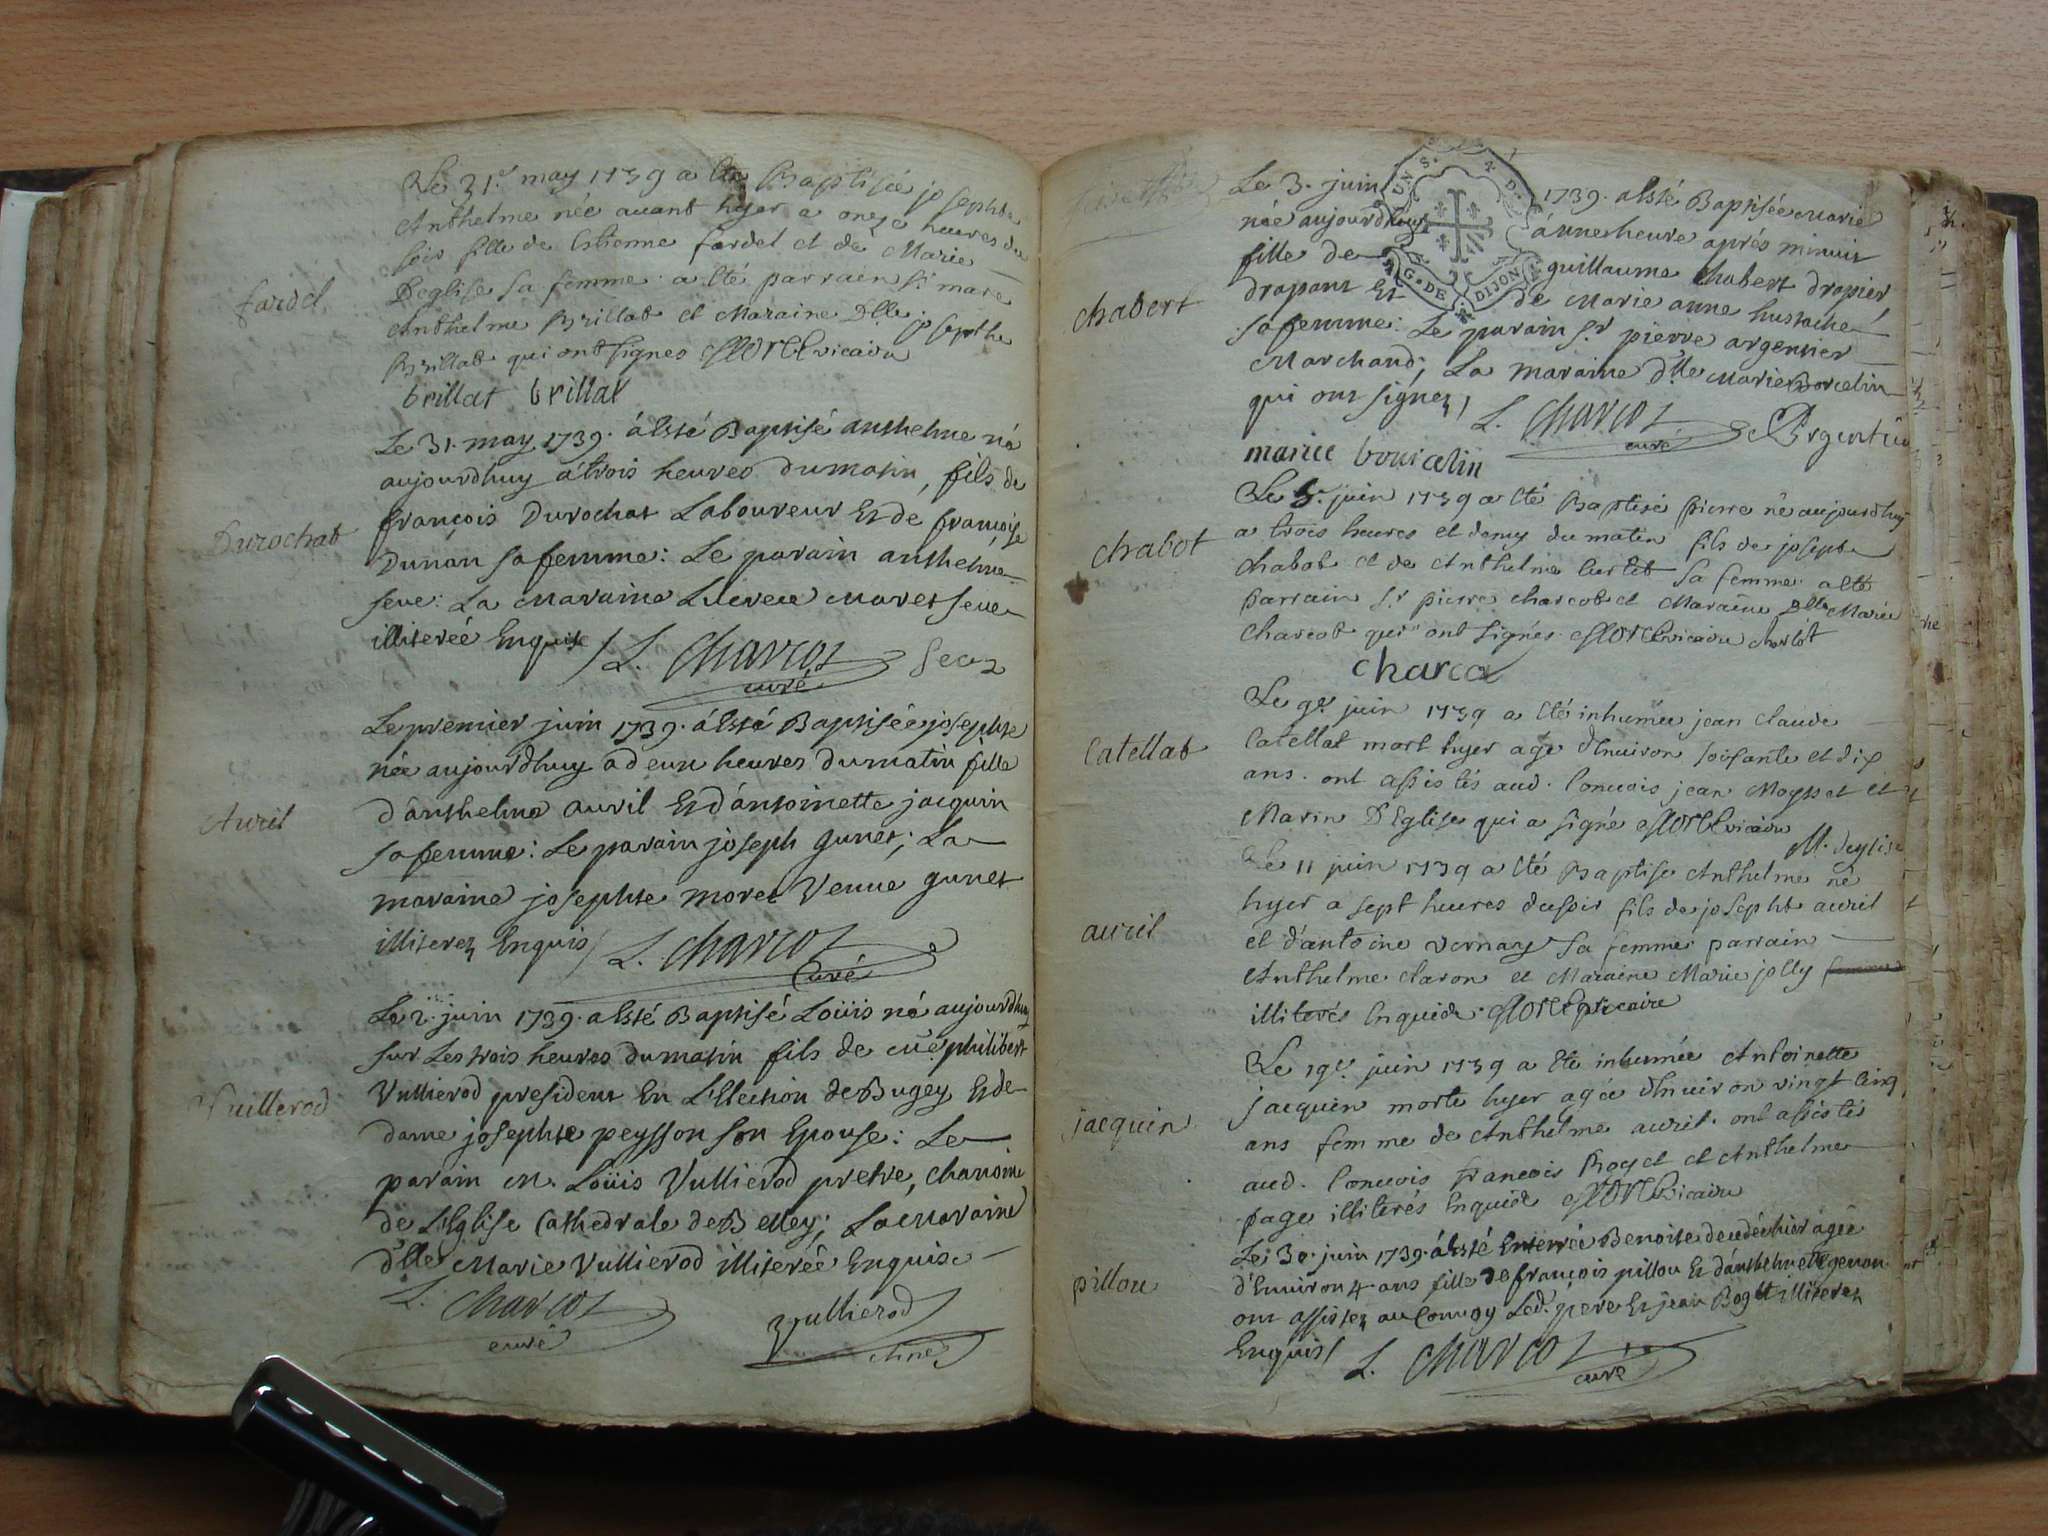 Le 31.e may 1739 a été Baptisée josephte
Anthelme née auant hyer a onze heures du
soir fille de Estienne fardel et de Marie
fardel
Deglise sa femme. a été parrain sr. marc
Anthelme Brillat et Maraine Dlle josepthe
Brillat qui ont signes vicaire
brillat brillat
Le 31. may 1739. á esté Baptisé anthelme né
aujourdhuy a trois heures du matin, fils de
Durochat
françois Durochat Laboureur Et de françoise
Dunan sa femme: Le parain anthelme
seue: La Maraine Lucrece Moret seue
illiterée Enquise / L. Charcot
curé
Le premier juin 1739. á esté Baptisée josephte
née aujourdhuy a deux heures du matin fille
Auril
d'anthelme auril Et d'antoinette jacquin
sa femme: Le parain joseph gunet; La
maraine josephte moret Veuue gunet
illiterez Enquis / L. Charcot
Curé
Le 2. juin 1739. a esté Baptisé Loüis né aujourdhuy
sur Les trois heures du matin fils de me philibert
Vuillerod
Vullierod president En L'Election de Bugey Et de
dame josephte peysson son Epouse: Le
parain m. Loüis Vullierod pretre, chanoine
de L'Eglise Cathedrale de Belley; La Maraine
dlle Marie Vullierod illiterée Enquise
L. Charcot
curé
Vullierod
chne
Le 3. juin 1739. a esté Baptisée Marie
née aujourdhuy á une heure aprés minuit
fille de guillaume Chabert drapier
chabert
drapant Et de Marie anne hustache
sa femme: Le parain sr pierre argentier
Marchand; La maraine dlle Marie Borcelin
qui ont signez / L. Charcot
curé
marie bourcelin
Le 5.e juin 1739 a été Baptisé pierre né aujourdhuy
chabot
a trois heures et demy du matin fils de josept
chabot et de Anthelme Curtet sa femme a été
parrain sr pierre charcot et Maraine Dlle Marie
charcot qui ont signés vicaire charlot
charcot
Le 9e juin 1739 a été inhumée jean claude
Catellat
Catellat mort hyer agé d'Enuiron soixante et dix
ans. ont assistés aud. Conuois jean Moysset et
Marin D'Eglise qui a signé vicaire
M. deglise
Le 11 juin 1739 a été Baptise Anthelme né
hyer a sept heures du soir fils de josepht auril
auril
et d'antoine vernay sa femme parrain
Anthelme Claron et Maraine Marie jolly
illiterés Enquide vicaire
Le 19e juin 1739 a été inhumée Antoinette
jacquin
jacquin morte hyer agée d'Enuiron vingt cinq
ans femme de Anthelme auril. ont assistés
aud. Conuois francois Roget et Anthelme
page illiterés Enquide vicaire
Le 30. juin 1739. á esté Enterrée Benoite decedée hier agée
pillou
d'Enuiron 4 ans fille de françois pillou Et d'anthelmette genou
ont assistez au Conuoy Led. pere Et jean Boget illiterez
Enquis / L. Charcot
curé
G. DE DIJON